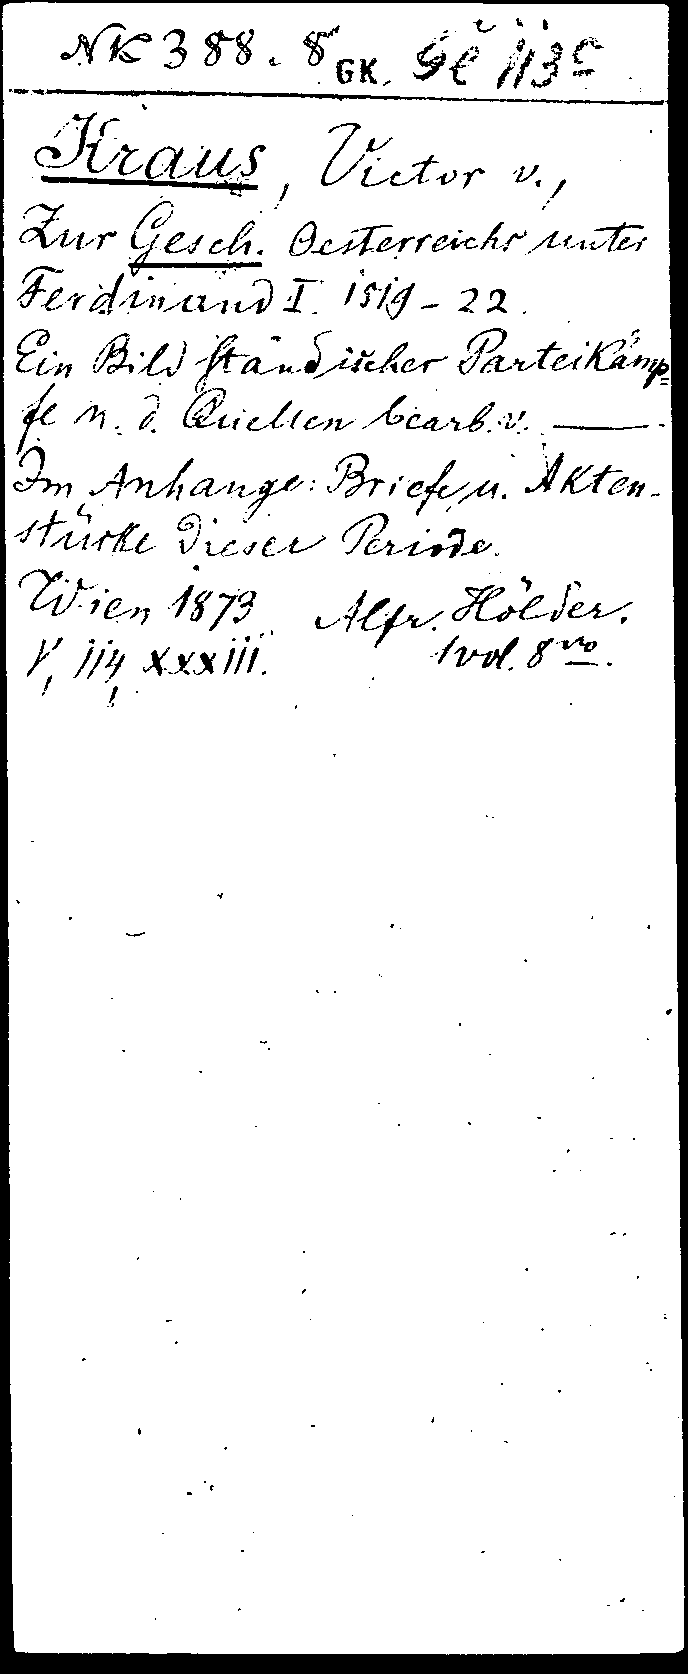 NK 388. 8° GK. Ge 113c
Kraus, Victor v.,
Zur Gesch. Oesterreichs unter
Ferdinand I. 1519-22.
Ein Bild ständischer Parteikämp=
fe n. d. Quellen bearb. v. ——.
Im Anhange: Briefe u. Akten-
stücke dieser Periode.
Wien 1873 Alfr. Hölder.
V, 114, XXXIII. 1 vol. 8vo.